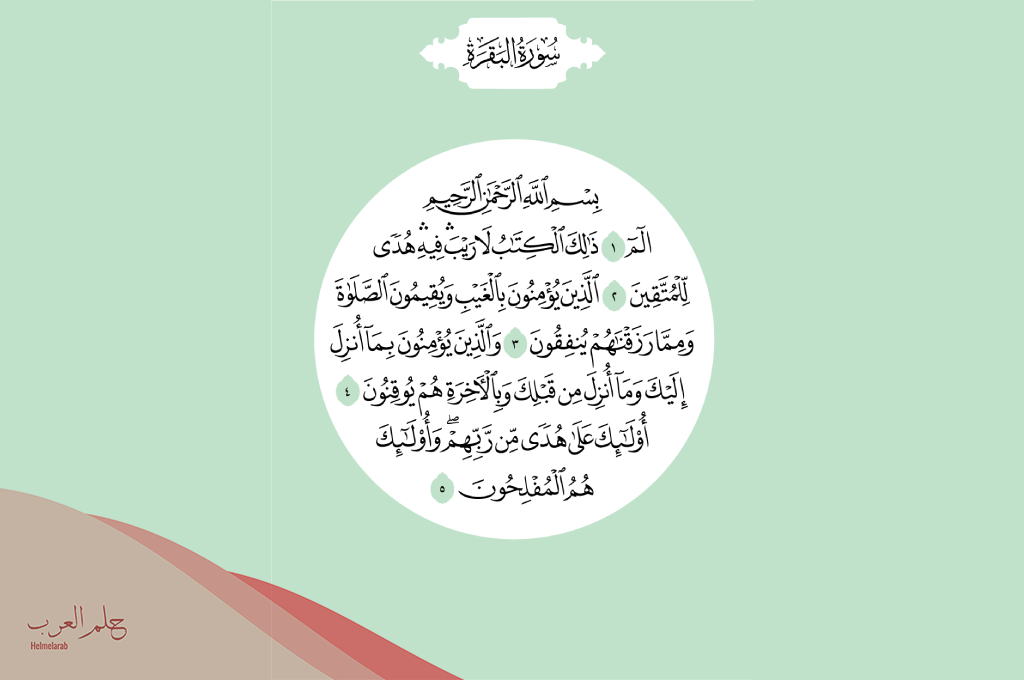 سُورَةُ البَقَرَةِ
بِسْمِ ٱللَّهِ ٱلرَّحْمَٰنِ ٱلرَّحِيمِ
الٓمٓ ١ ذَٰلِكَ ٱلْكِتَٰبُ لَا رَيْبَۛ فِيهِۛ هُدًى
لِّلْمُتَّقِينَ ٢ ٱلَّذِينَ يُؤْمِنُونَ بِٱلْغَيْبِ وَيُقِيمُونَ ٱلصَّلَوٰةَ
وَمِمَّا رَزَقْنَٰهُمْ يُنفِقُونَ ٣ وَٱلَّذِينَ يُؤْمِنُونَ بِمَآ أُنزِلَ
إِلَيْكَ وَمَآ أُنزِلَ مِن قَبْلِكَ وَبِٱلْأَخِرَةِ هُمْ يُوقِنُونَ ٤
أُوْلَٰٓئِكَ عَلَىٰ هُدًى مِّن رَّبِّهِمْۖ وَأُوْلَٰٓئِكَ
هُمُ ٱلْمُفْلِحُونَ ٥
حلم العرب
Helmelarab